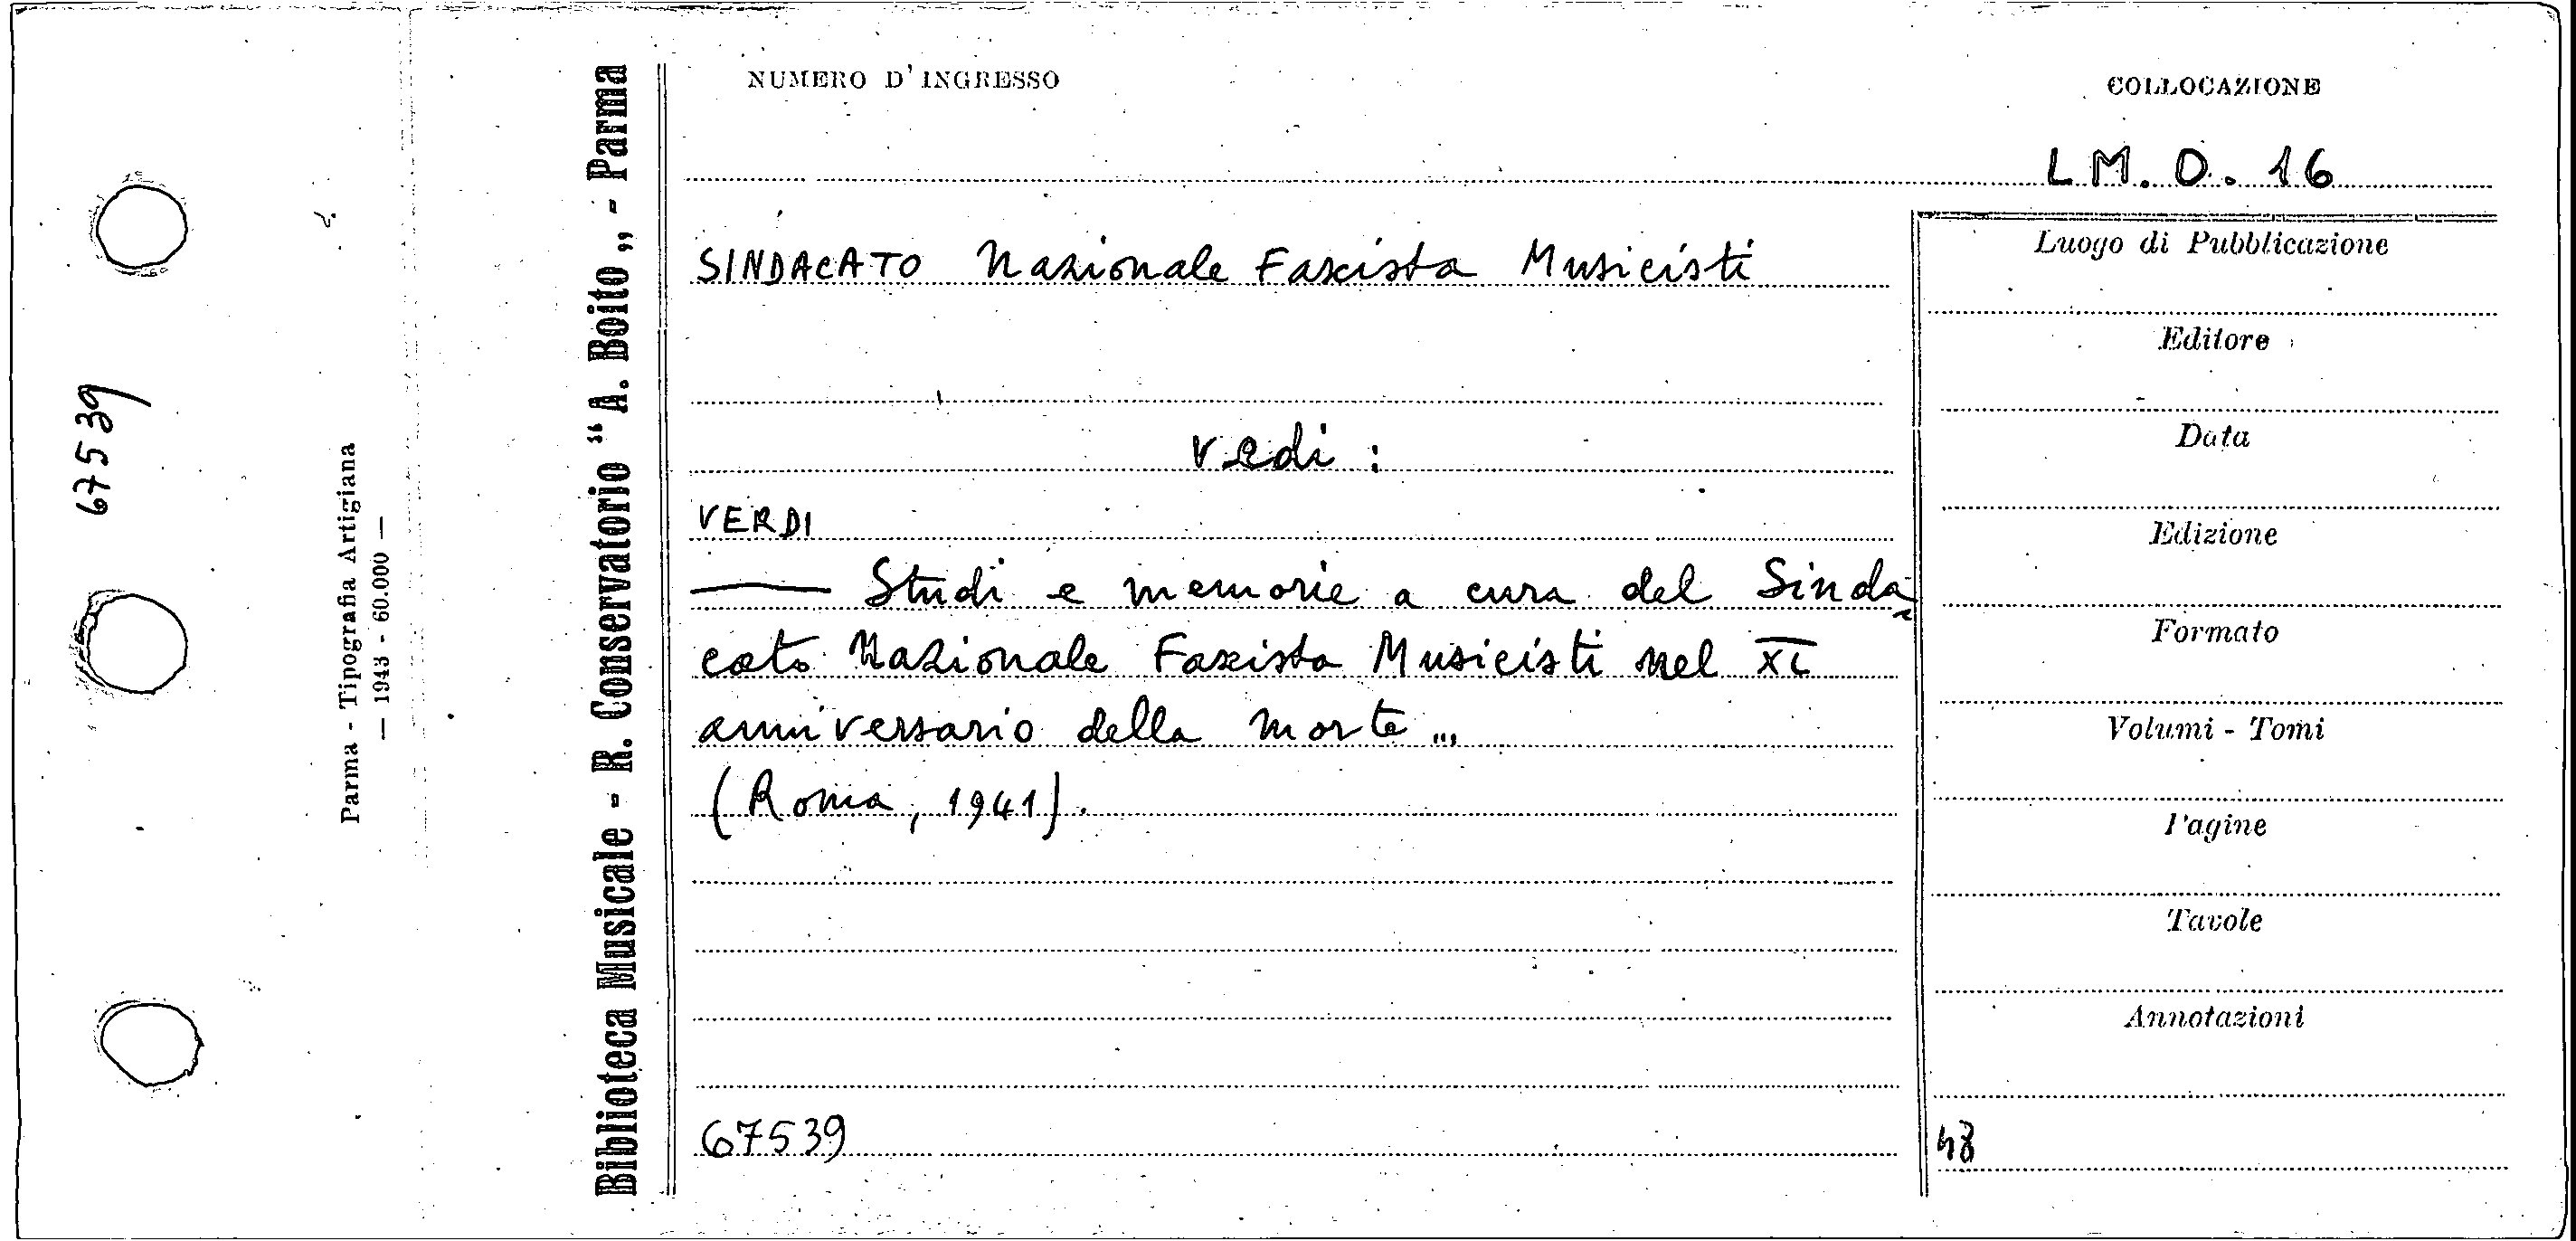 NUMERO D'INGRESSO
COLLOCAZIONE
L M. O. 16
SINDACATO Nazionale Fascista Musicisti
vedi :
VERDI
—— Studi e memorie a cura del Sinda-
cato Nazionale Fascista Musicisti nel XL
anniversario della morte...
(Roma, 1941).
67539
Luogo di Pubblicazione
Editore
Data
Edizione
Formato
Volumi - Tomi
Pagine
Tavole
Annotazioni
48
Biblioteca Musicale - R. Conservatorio "A. Boito„ - Parma
Parma - Tipografia Artigiana
— 1943 - 60.000 —
67539